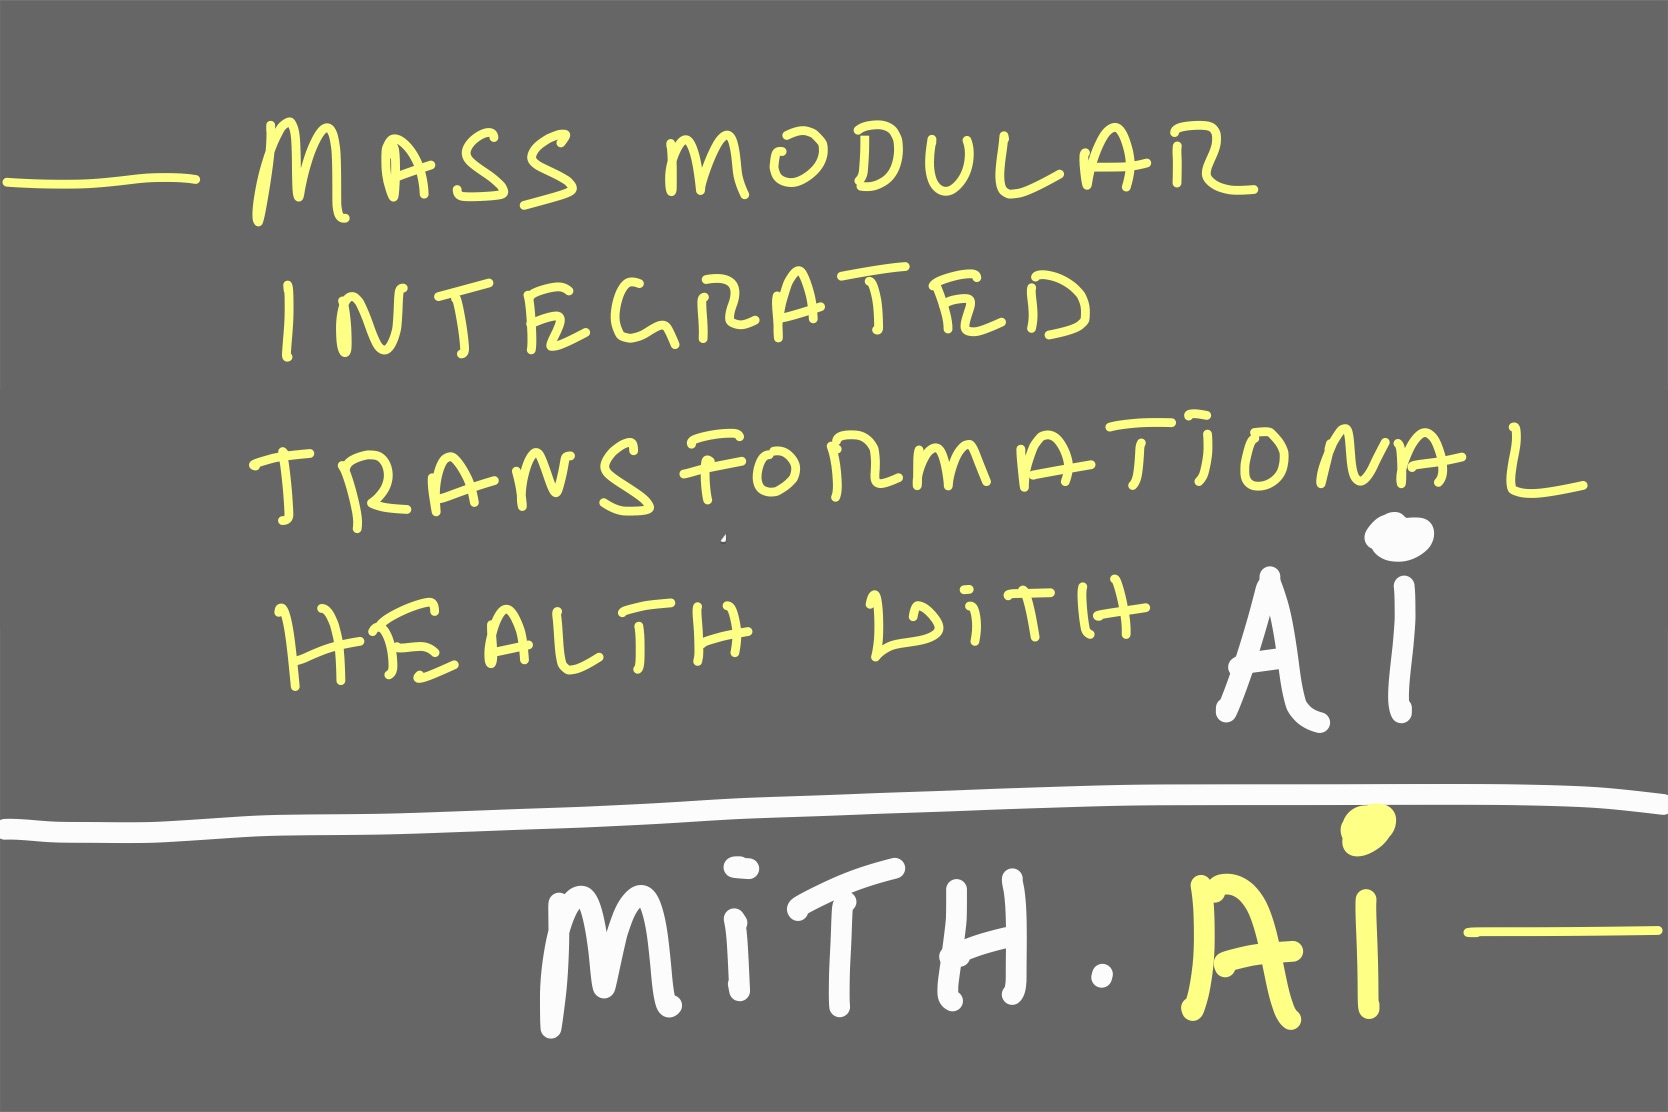 MASS MODULAR
INTEGRATED
TRANSFORMATIONAL
HEALTH WiTH Ai
MiTH.Ai